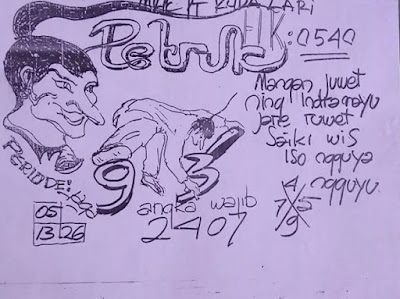 KUDA LARI
Petruk
HK:0540
Mangan juwet
ning Indramayu
jare ruwet
saiki wis
iso ngguya
ngguyu.
PERIODE:
9 3
05
13 26
angka wajib
2407
4
7 X 5
9